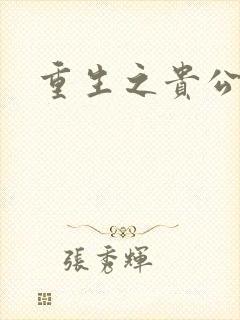 重生之貴公
張秀輝